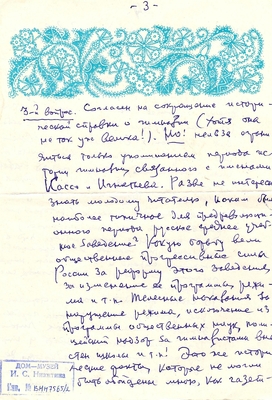 - 3 -
3-й вопрос. Согласен на сокращение истори-
ческой справки о гимназии (Хотя она
не так уж велика!). Но! нельзя огран
читься только упоминанием периода ис-
тории гимназии связанного с именами
Кассо - Игнатьева. Разве не интересно
знать молодому читателю, каким было
наиболее типичное для предреволюци-
онного периода русское среднее учеб-
ное заведение? Какую борьбу вели
общественные прогрессивные силы
России за реформу этого заведения,
за изменение его программы, режи-
ма и т.п. Телесные наказания за
нарушение режима, исключение из
программы общественных наук, поли-
цейский надзор за гимназистами вне
стен школы и т.п! Это же истори-
ческие факты, которые не могли
быть обойдены мною, как газет-
ДОМ-МУЗЕЙ
И. С. Никитина
Инв. № ВМН 7565/2